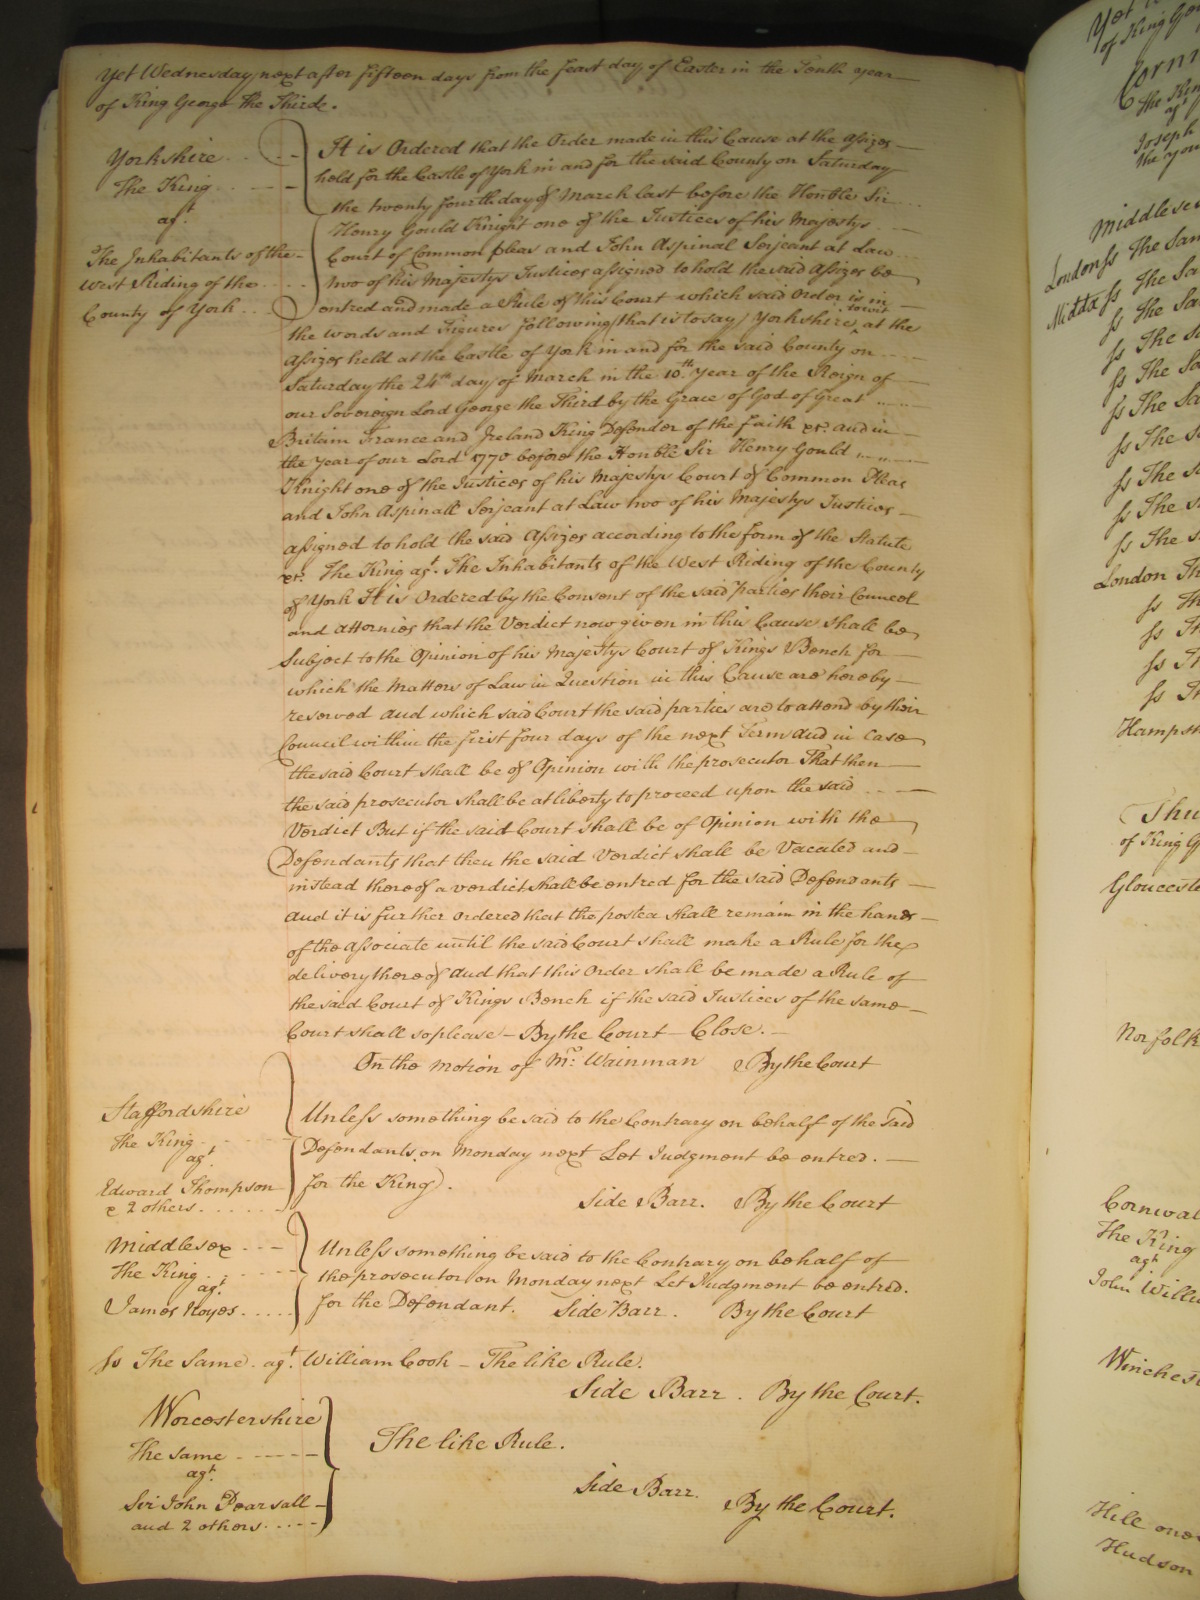 Yet Wednesday next after fifteen days from the feast day of Easter in the Tenth year
of King George the Third.
Yorkshire
The King
agt.
The Inhabitants of the
West Riding of the
County of York
It is Ordered that the Order made in this Cause at the assizes
held for the Castle of York in and for the said County on Saturday
the twenty fourth day of March last before the Honble Sir
Henry Gould Knight one of the Justices of his Majestys
Court of Common pleas and John Aspinal Serjeant at Law
two of his Majestys Justices assigned to hold the said Assizes be
entred and made a Rule of this Court which said Order is in
the words and Figures following (that is to say) Yorkshire to wit at the
Assizes held at the Castle of York in and for the said County on
Saturday the 24th day of March in the 10th Year of the Reign of
our Sovereign Lord George the Third by the Grace of God of Great
Britain France and Ireland King Defender of the Faith &c. and in
the Year of our Lord 1770 before the Honble Sir Henry Gould
Knight one of the Justices of his Majestys Court of Common Pleas
and John Aspinall Serjeant at Law two of his Majestys Justices
assigned to hold the said Assizes according to the form of the Statute
&c. The King agt. The Inhabitants of the West Riding of the County
of York It is Ordered by the Consent of the said parties their Councel
and attornies that the Verdict now given in this Cause shall be
Subject to the Opinion of his Majestys Court of Kings Bench for
which the Matters of Law in Question in this Cause are hereby
reserved and which said Court the said parties are to attend by their
Council within the first four days of the next Term and in Case
the said Court shall be of Opinion with the prosecutor That then
the said prosecutor shall be at liberty to proceed upon the said
Verdict But if the said Court shall be of Opinion with the
Defendants that then the said Verdict shall be Vacated and
instead thereof a verdict shall be entred for the said Defendants
and it is further ordered that the postea shall remain in the hands
of the associate until the said Court shall make a Rule for the
delivery thereof and that this Order shall be made a Rule of
the said Court of Kings Bench if the said Justices of the same
Court shall so please - By the Court - Close. -
On the Motion of Mr. Wainman By the Court
Staffordshire
The King
agt.
Edward Thompson
& 2 others
Unless something be said to the Contrary on behalf of the said
Defendants on Monday next Let Judgment be entred.
for the King.
Side Barr. By the Court
Middlesex
The King
agt.
James Noyes
Unless something be said to the Contrary on behalf of
the prosecutor on Monday next Let Judgment be entred.
for the Defendant. Side Barr. By the Court
ss The Same agt. William Cook - The like Rule.
Side Barr. By the Court.
Worcestershire
The same
agt.
Sir John Pearsall
and 2 others
The like Rule.
Side Barr.
By the Court.
of King
The Kin
agt
Joseph
the you
Middlesex
London ss The Sam
Middx ss The Sa
ss The Sa
ss The S
ss The Sa
ss The Sa
ss The S
ss The S
ss The S
ss The S
London Th
ss Th
ss T
ss T
ss T
Hampsh
Thu
of King G
Glouceste
Norfolk
Cornwal
The King
agt
John Willi
Winchest
Hill one
Hudson